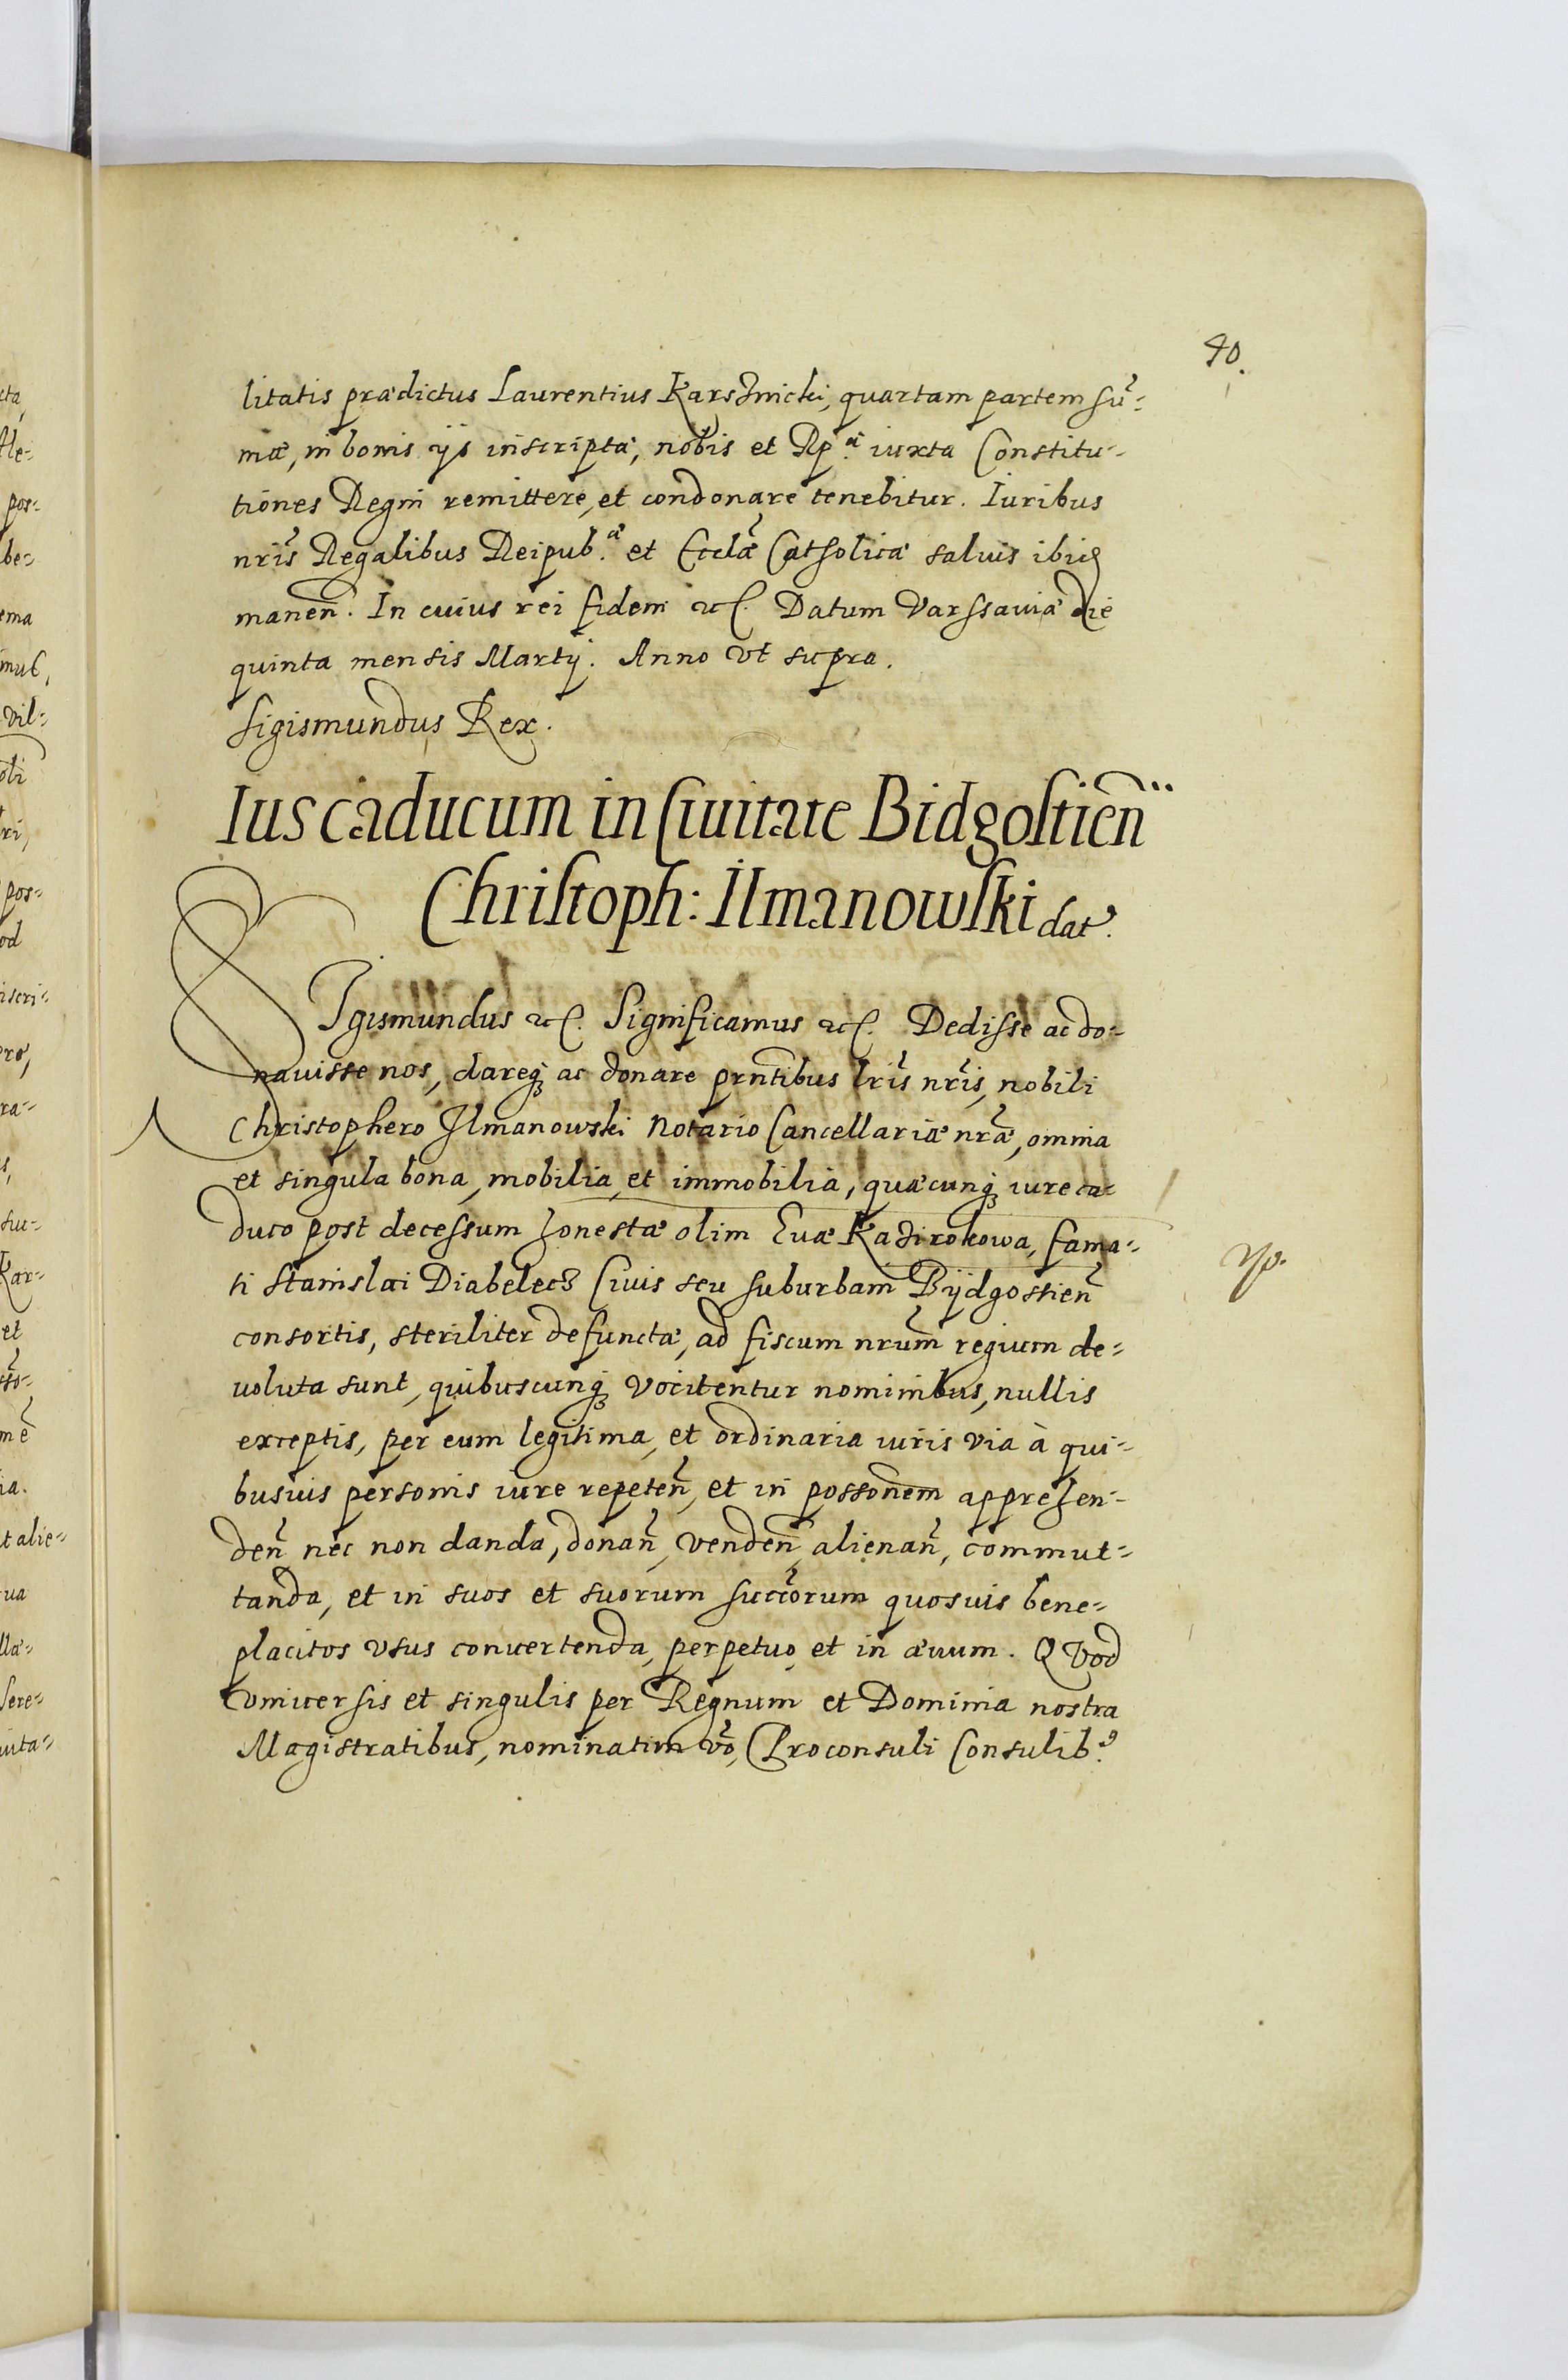 40.
litatis prædictus Laurentius Karsznicki, quartam partem sũ-
mæ, in bonis ijs inscriptæ, nobis et Rp.æ iuxta Constitu-
tiones Regni remittere, et condonare tenebitur. Iuribus
nrĩs Regalibus Reipub.æ et Ecclæ̃ Catholicæ saluis ibid
manen̄. In cuius rei fidem etc. Datum Varssauiæ die
quinta mensis Martij. Anno vt supra.
Sigismundus Rex.
Ius caducum in Ciuitate Bidgostien̄
Christoph: Ilmanowski dat.
SIgismundus etc. Significamus etc. Dedisse ac do-
nauisse nos, dareq ac donare prñtibus lrĩs nrĩs, nobili
Christophero Ilmanowski Notario Cancellariæ nræ̃, omnia
et singula bona, mobilia et immobilia, quæcunq iure ca-
duco post decessum honestæ olim Euæ Kazirokowa, fama-
ti Stanislai Diabelecz Ciuis seu suburbani Bijdgostien̄
consortis, steriliter defunctæ, ad fiscum nrũm regium de-
uoluta sunt, quibuscunq vocitentur nominibus, nullis
exceptis, per eum legitima, et ordinaria iuris via à qui-
busuis personis iure repeten̄, et in possoñem apprehen-
den̄ nec non danda, donan̄, venden̄, alienan̄, commut-
tanda, et in suos et suorum succõrum quosuis bene-
placitos vsus conuertenda, perpetuo et in æuum. QVod
vniuersis et singulis per Regnum et Dominia nostra
Magistratibus, nominatim võ, Proconsuli Consulib.9